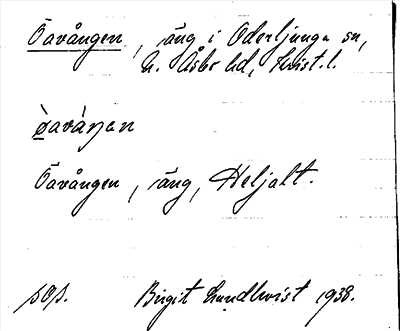 Öavången, äng i Oderljunga sn,
N. Åsbo hd, Krist. l.
ø̀avàŋen
Öavången, äng, Heljalt.
sop. Birgit Lundkvist 1938.